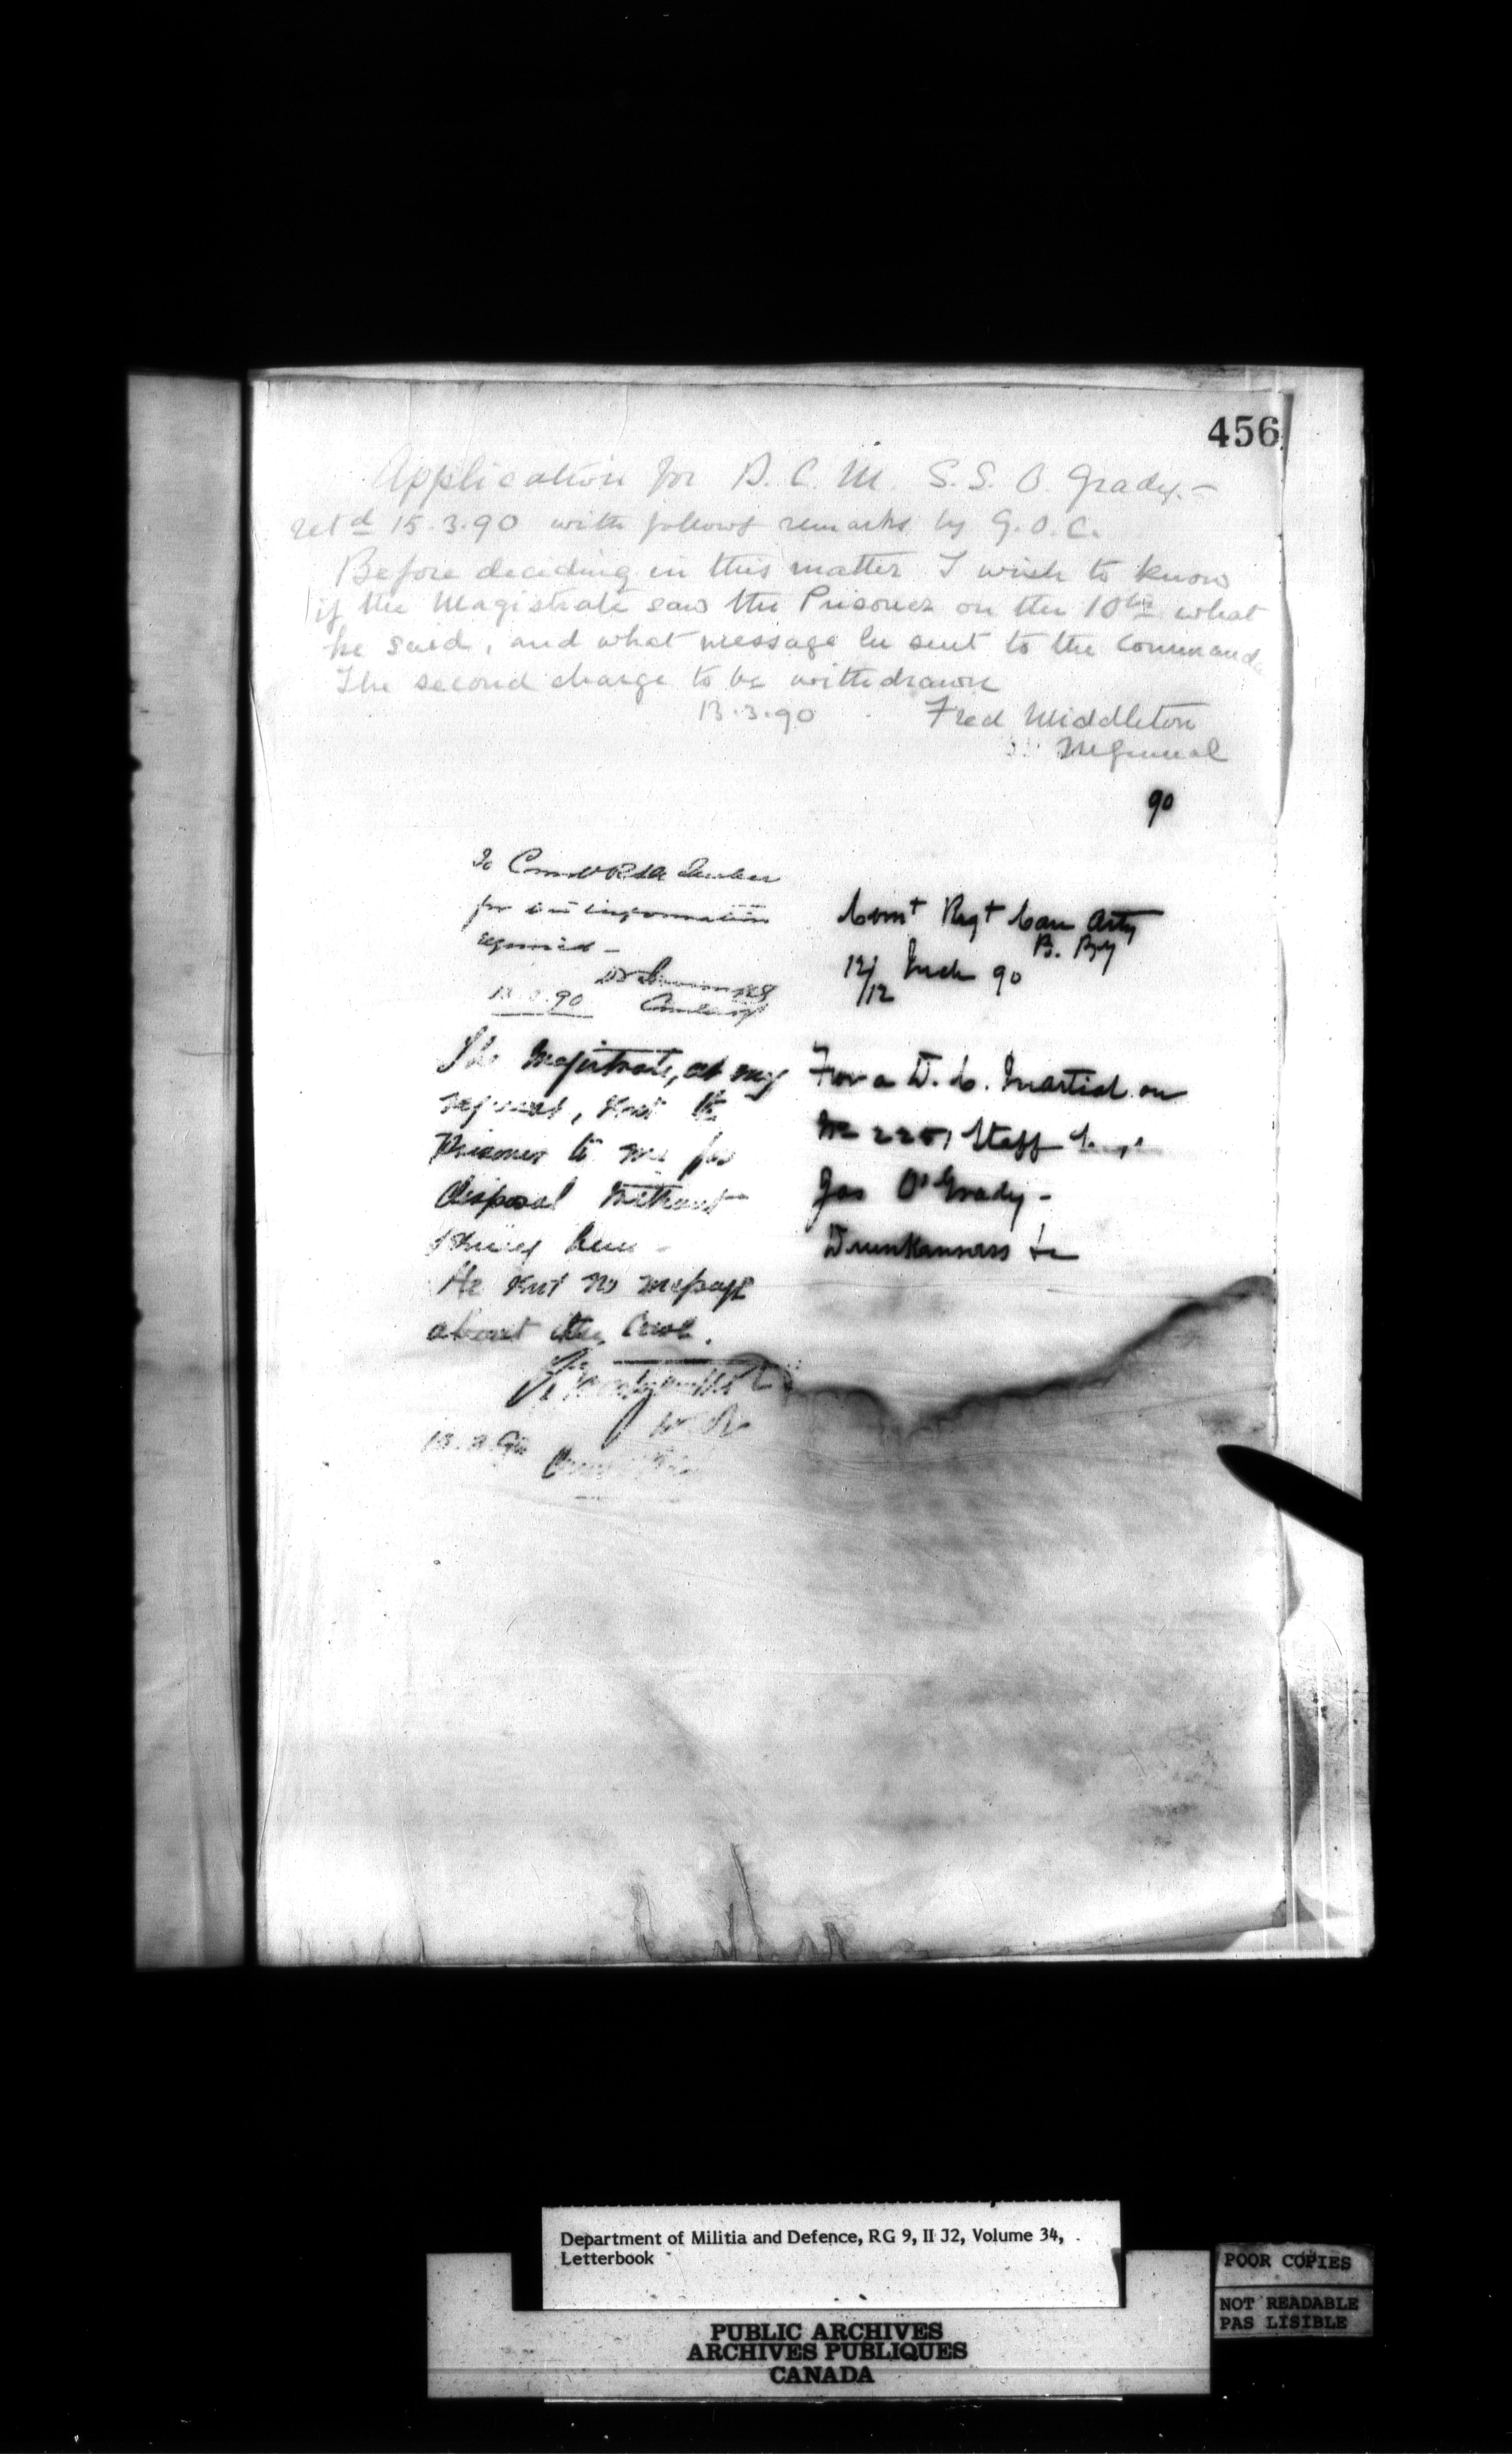 456
Application for D. C. M. S. S. O. Grady. -
retd 15.3.90 with follows remarks by G. O. C.
Before deciding in this matter I wish to know
if the Magistrate saw the Prisoner on the 10th what
he said, and what message he sent to the Command
The second charge to be withdrawn
13.3.90 Fred Middleton
MGeneral
90
To
for information
required -
90
The Magistrate, at my
request, sent the
Prisoner to me for
disposal without
seeing him -
He sent no message
about the case.
Comt Regt Can Arty
B. By
12/12 90
For a D. C. Martial on
No 2251 Staff
Jas O'Grady -
Drunkenness &c
Department of Militia and Defence, RG 9, II J2, Volume 34,
Letterbook
PUBLIC ARCHIVES
ARCHIVES PUBLIQUES
CANADA
POOR COPIES
NOT READABLE
PAS LISIBLE